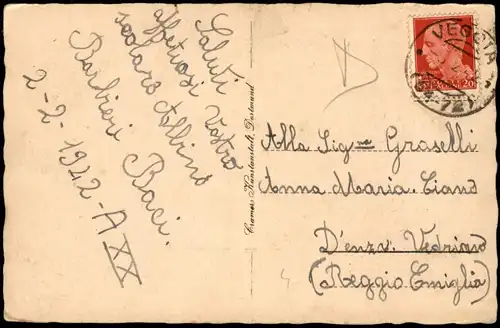 Saluti
affetuosi Vostro
scolare Albino
Barbieri Baci.
2-2-1942-A
XX
Cramers Kunstanstalt, Dortmund
Alla Sig-na Graselli
Anna Maria. Ciano
D'enza. Vedriano
(Reggio Emiglia)
VEGGIA
20